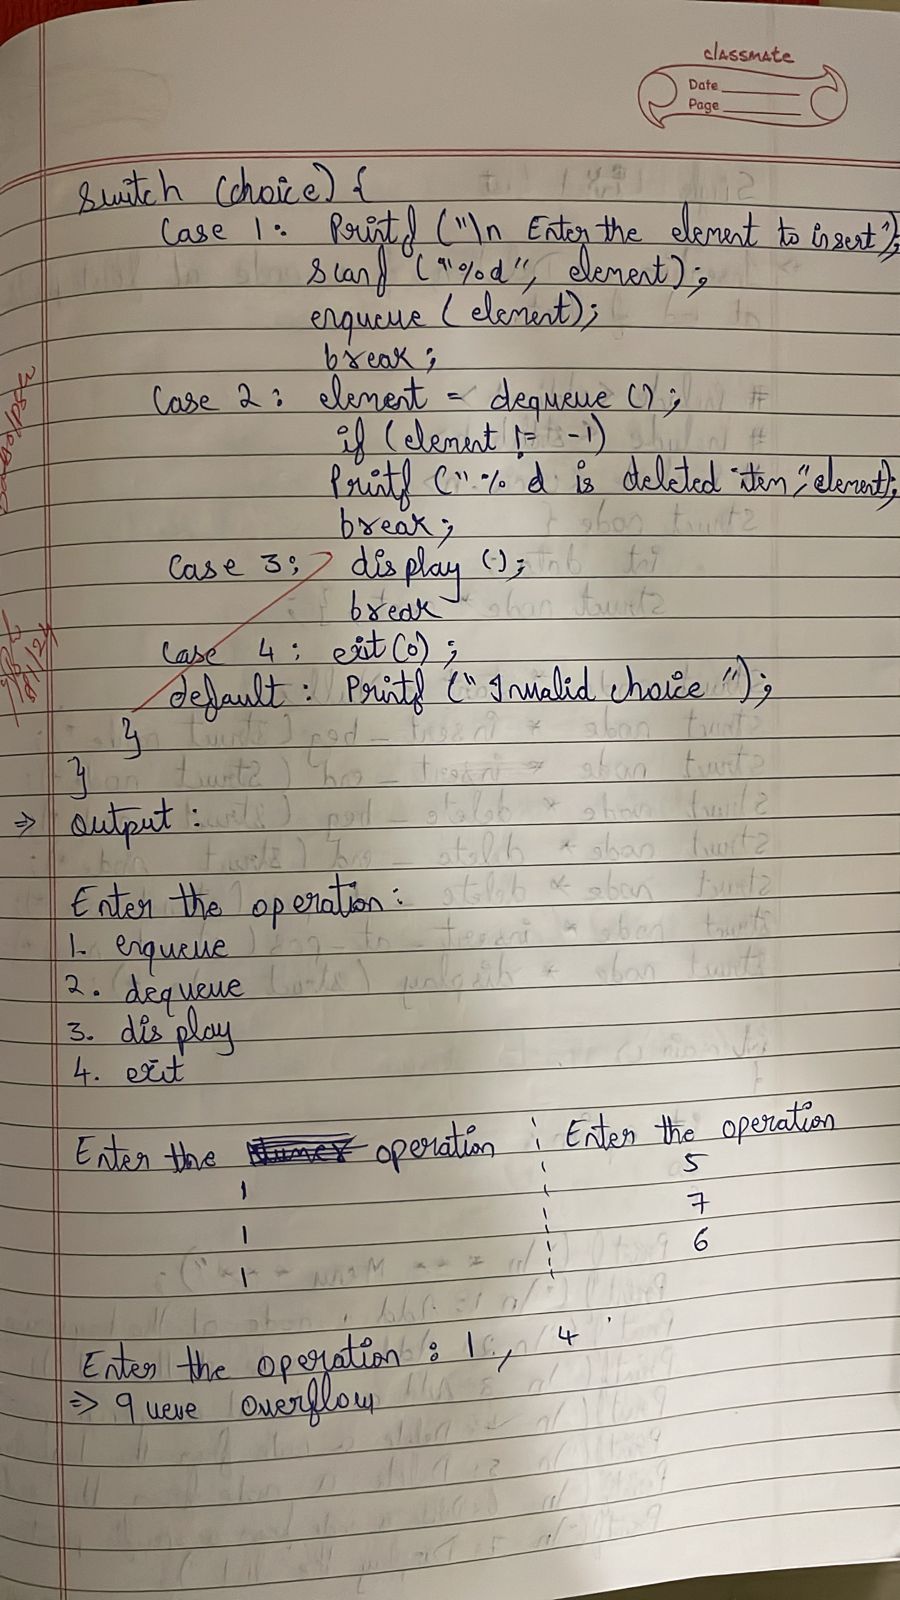 classmate
Date
Page
Switch (choice) {
Case 1: Printf ("\n Enter the element to insert");
Scanf ("%d", element);
enqueue (element);
break;
Case 2: element = dequeue ();
if (element != -1)
Printf ("%d is deleted item", element);
break;
Case 3: display ();
break
Case 4: exit(0);
default: Printf ("Invalid choice");
}
}
⇒ Output:
Enter the operation:
1. enqueue
2. dequeue
3. display
4. exit
Enter the operation
1
1
1
Enter the operation
5
7
6
Enter the operation: 1, 4
⇒ queue overflow